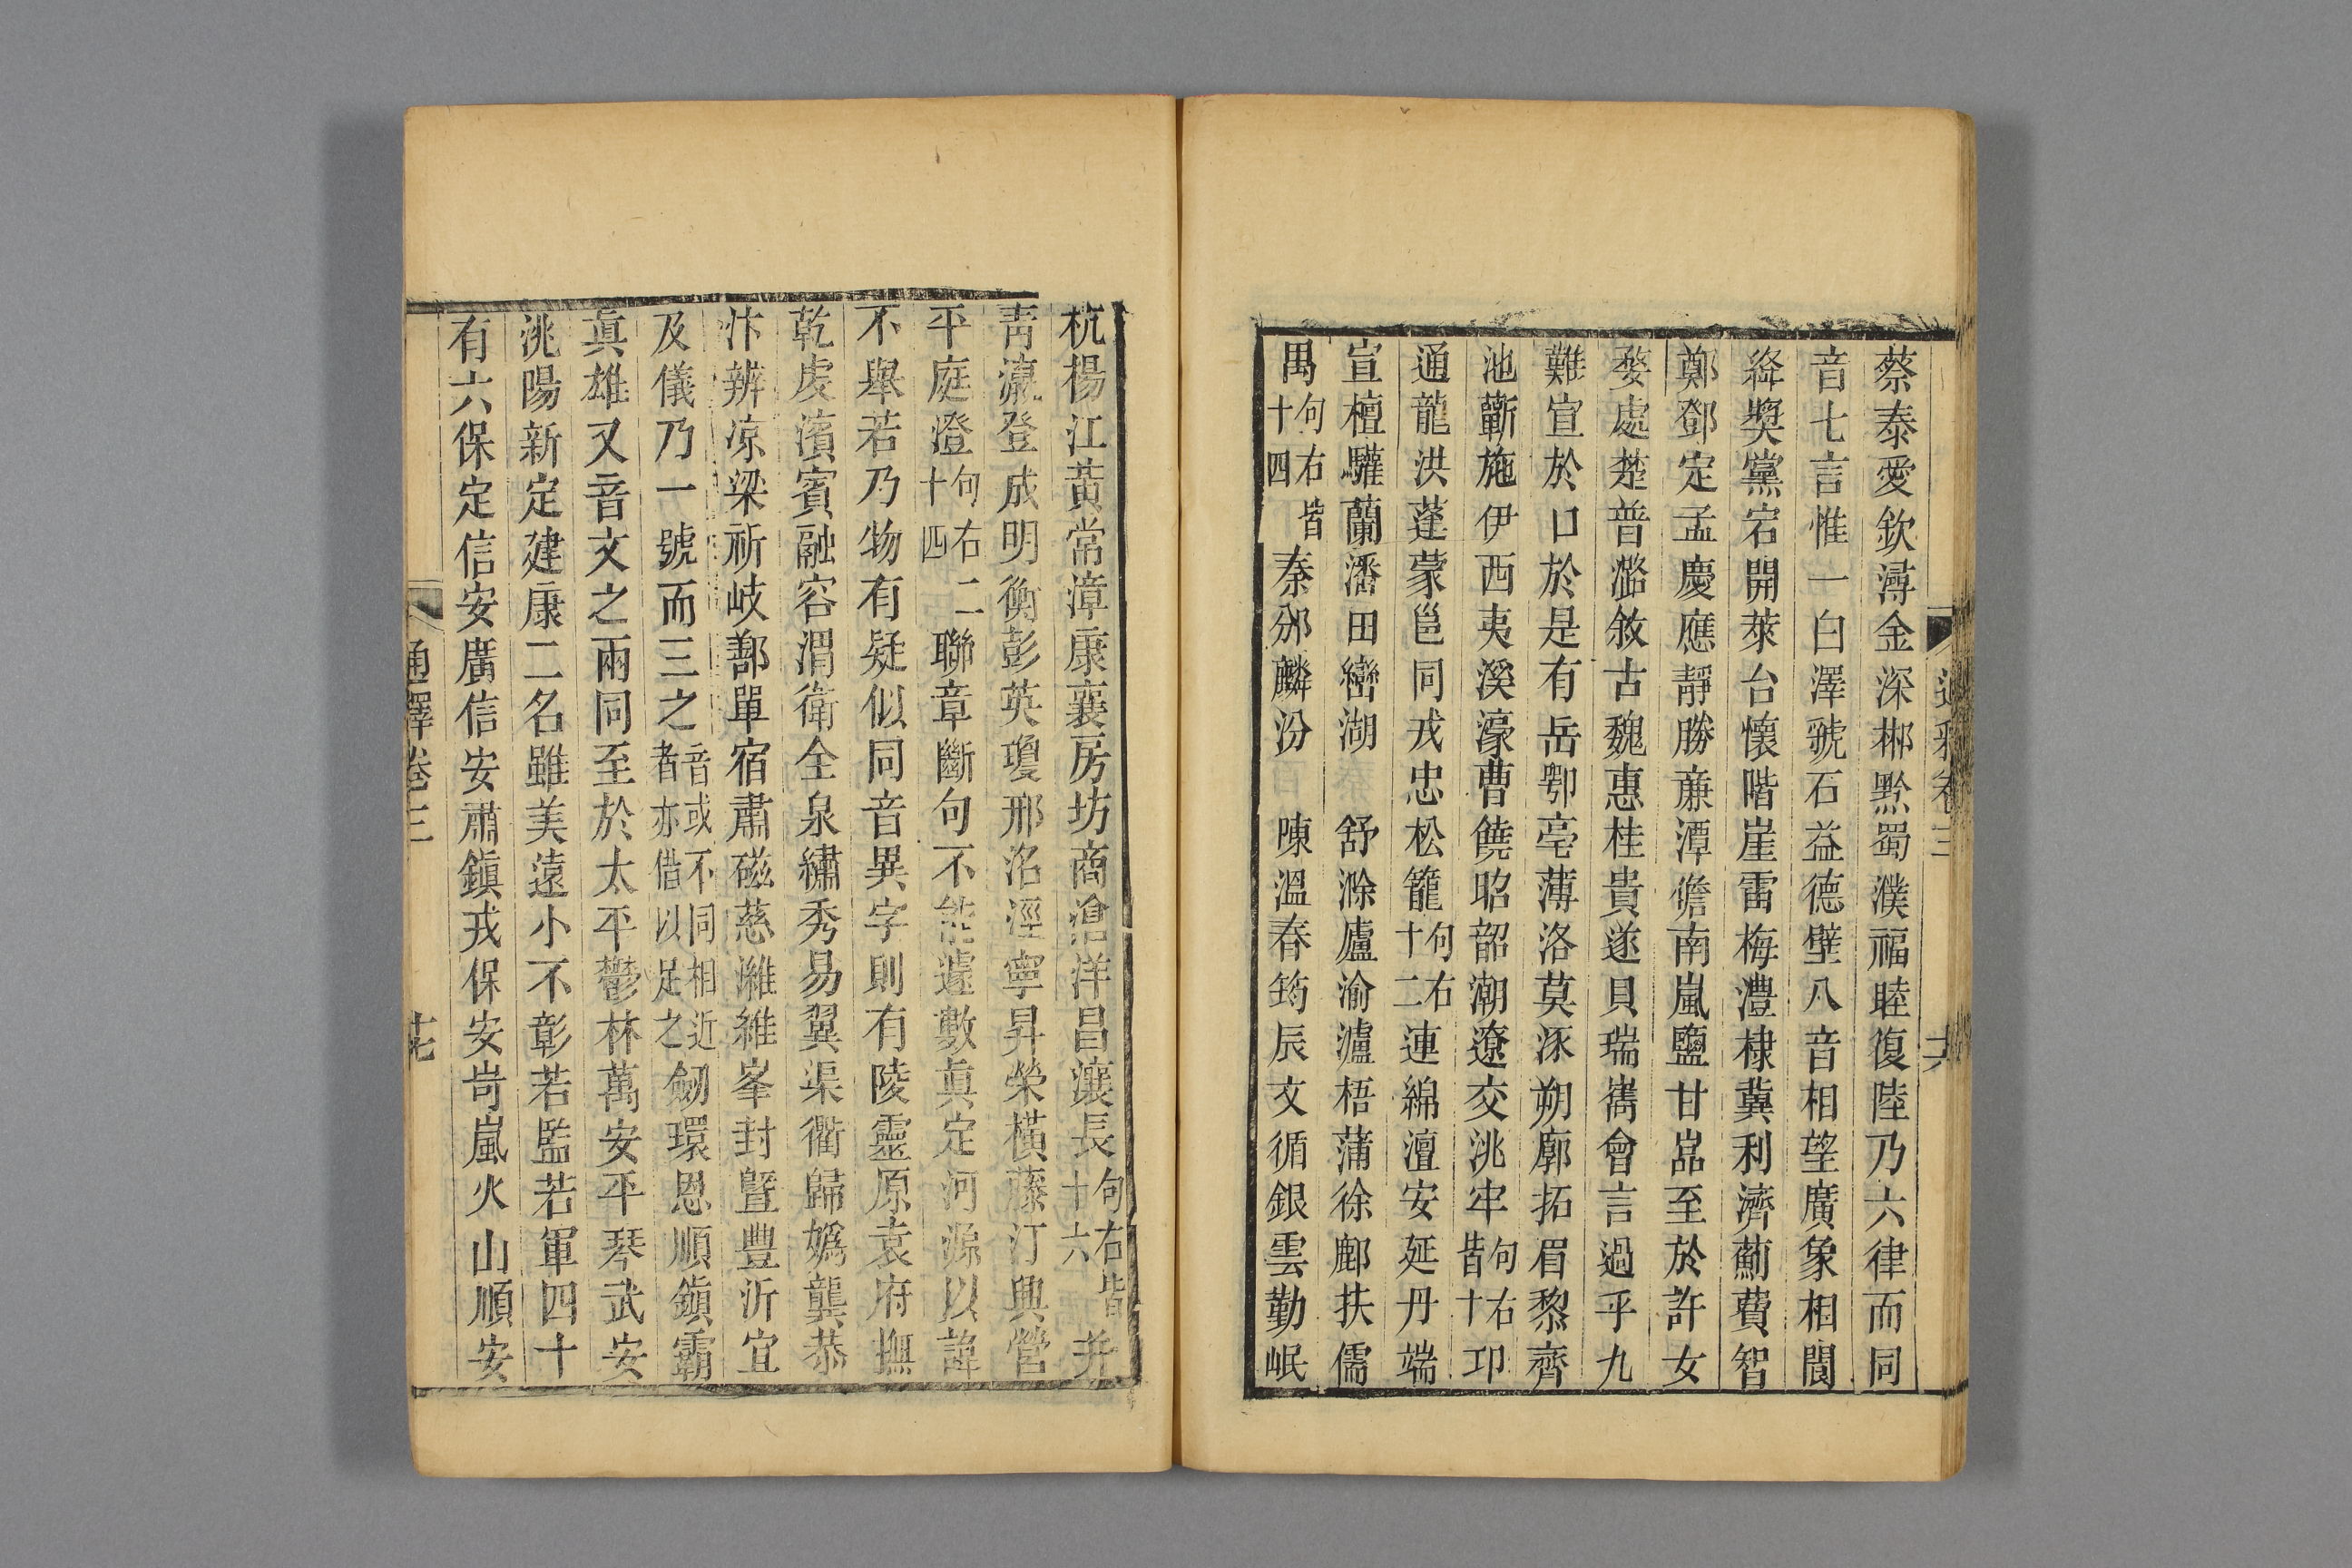 蔡泰愛欽潯金深郴黔蜀濮福睦復陸乃六律而同
音七言惟一白澤虢石益德壁八音相望廣象相閬
絳獎黨宕開萊台懷階崖雷梅澧棣冀利濟薊費智
鄭鄧定孟慶應靜勝亷潭儋南嵐鹽甘嵓至於許女
婺處楚普潞敘古魏惠桂貴遂貝瑞嶲會言過乎九
難宣於口於是有岳鄂亳薄洛莫涿朔廓拓眉黎齊
池蘄施伊西夷溪濠曹饒昭韶潮遼交洮牢句右皆十卭
通龍洪蓬蒙邕同戎忠松籠句右十二連綿澶安延丹端
宣檀驩蘭潘田巒湖 舒滁廬渝瀘梧蒲徐鄜扶儒
禺句右皆十四秦邠麟汾 陳溫春筠辰文循銀雲勤岷
卷三
杭楊江黃常漳康襄房坊商滄洋昌瀼長句右皆十六并
靑瀛登成明衡彭英瓊邢洺涇寧昇榮橫藤汀興營
平庭澄句右十四二聯章斷句不能遽數眞定河源以諱
不舉若乃物有疑似同音異字則有陵靈原袁府撫
乾虔濱賓融容渭衛全泉繡秀易翼渠衢歸嬀龔恭
汴辨凉梁祈岐鄯單宿肅磁慈濰維峯封曁豐沂宜
及儀乃一號而三之音或不同相近者亦借以足之劒環恩順鎭霸
眞雄又音文之兩同至於太平鬱林萬安平琴武安
洮陽新定建康二名雖美遠小不彰若監若軍四十
有六保定信安廣信安肅鎭戎保安岢嵐火山順安
通釋卷三